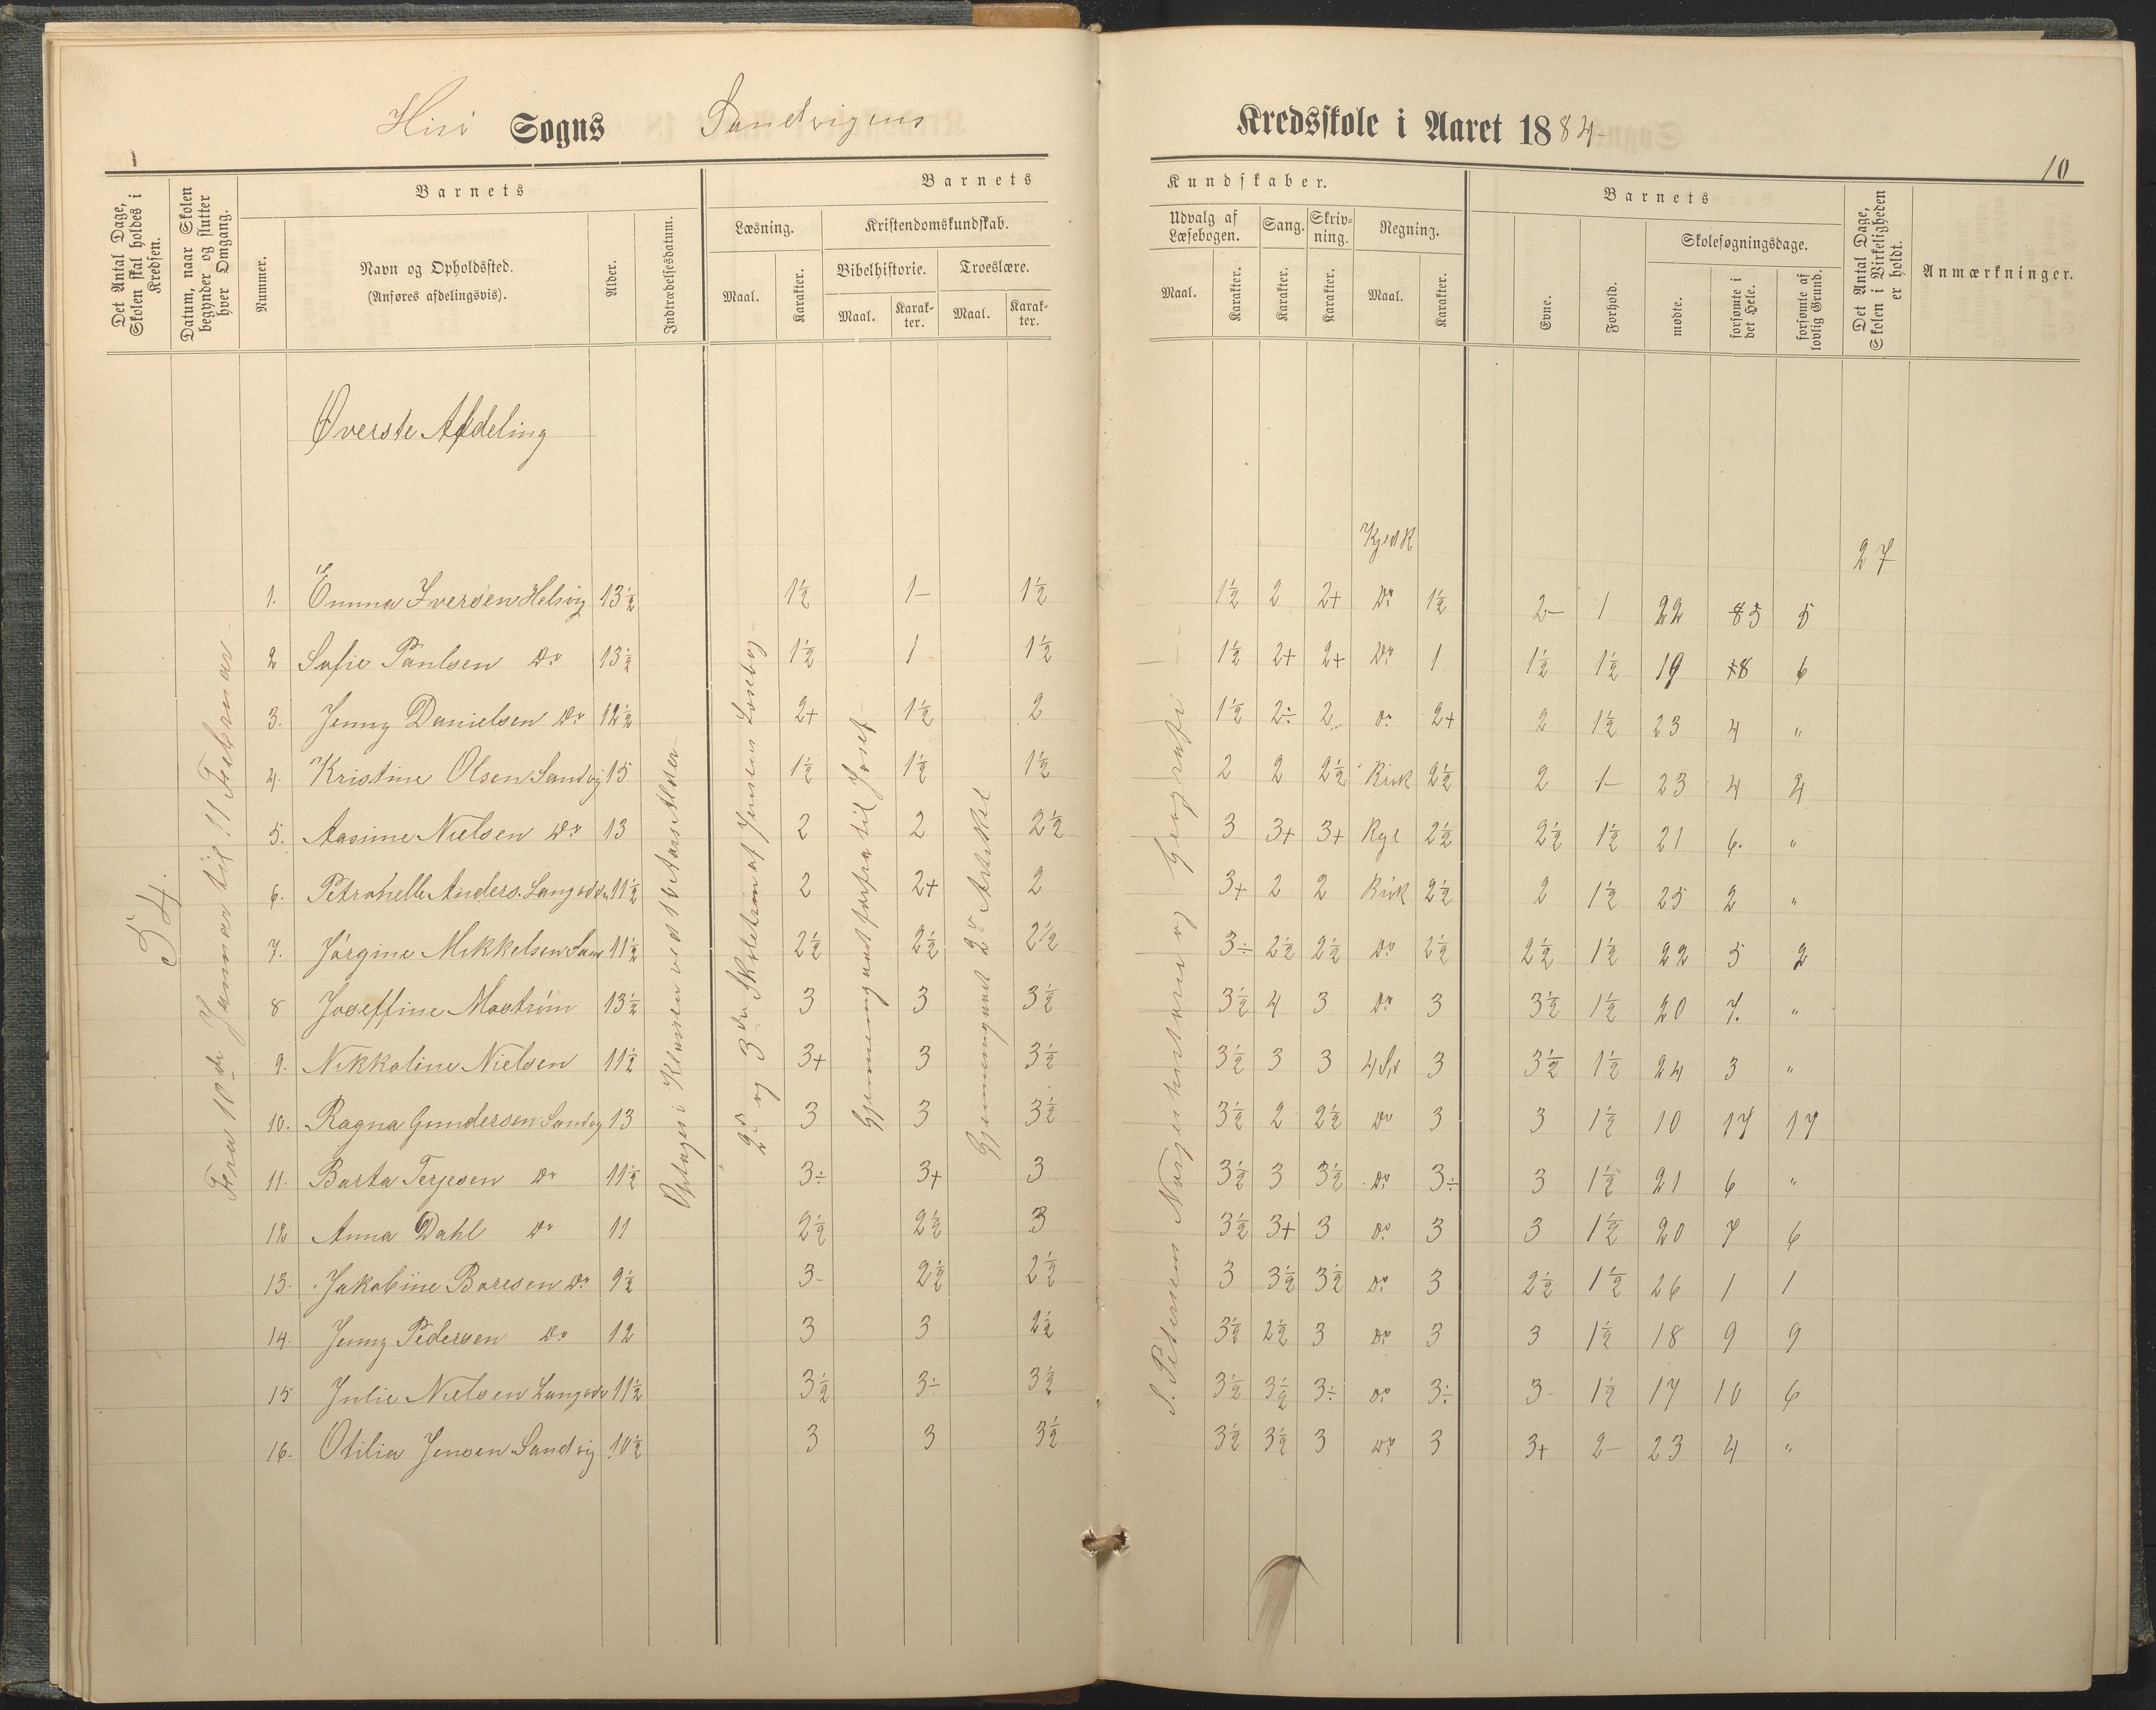 Hisø Sogns Sandvigens Kredsskole i Aaret 1884
10
Det Antal Dage, Skolen skal holdes i Kredsen.
Datum, naar Skolen begynder og slutter hver Omgang.
Barnets
Nummer.
Navn og Opholdssted.
(Anføres afdelingsvis).
Alder.
Indtrædelsesdatum.
Barnets Kundskaber.
Læsning.
Maal.
Karakter.
Kristendomskundskab.
Bibelhistorie.
Maal.
Karakter.
Troeslære.
Maal.
Karakter.
Udvalg af Læsebogen.
Maal.
Karakter.
Sang.
Karakter.
Skrivning.
Karakter.
Regning.
Maal.
Karakter.
Barnets
Evne.
Forhold.
Skolesøgningsdage.
mødte.
forsømte i det Hele.
forsømte af lovlig Grund.
Det Antal Dage, Skolen i Virkeligheden er holdt.
Anmærkninger.
Øverste Afdeling
54.
Fra 10de Januar til 11 Februar
Optages i Klassen ved 10 Aars Alder
2det og 3die Skoletrin af Jensens Læsebog
Gjennemgaaet forfra til Josef
Gjennemgaaet 2den Artikel
S. Petersens Norgeshistorie og Geografi
Kjedr
27
1. Emma Iversen Helsvig 13½ 1½ 1- 1½ 1½ 2 2+ Do 1½ 2- 1 22 5 5
2 Sofie Paulsen Do 13½ 1½ 1 1½ 1½ 2+ 2+ Do 1 1½ 1½ 19 8 6
3. Jenny Danielsen Do 12½ 2+ 1½ 2 1½ 2÷ 2 Do 2+ 2 1½ 23 4 "
4. Kristine Olsen Sandvig 15 1½ 1½ 1½ 2 2 2½ Brøk 2½ 2 1- 23 4 4
5. Aasine Nielsen Do 13 2 2 2½ 3 3+ 3+ Rgl 2½ 2½ 1½ 21 6. "
6. Petronelle Anders. 11½ 2 2+ 2 3+ 2 2 Brøk 2½ 2 1½ 25 2 "
7. Jørgine Mikkelsen Sand 11½ 2½ 2½ 2½ 3÷ 2½ 2½ Do 2½ 2½ 1½ 22 5 2
8 Joseffine Mostrøm 13½ 3 3 3½ 3½ 4 3 Do 3 3½ 1½ 20 7. "
9. Nikkoline Nielsen 11½ 3+ 3 3½ 3½ 3 3 3 3½ 1½ 24 3 "
10. Ragna Gundersen Sandvig 13 3 3 3½ 3½ 2 2½ Do 3 3 1½ 10 17 17
11. Barta Terjesen Do 11½ 3÷ 3+ 3 3½ 3 3½ Do 3÷ 3 1½ 21 6 "
12 Anna Dahl Do 11 2½ 2½ 3 3½ 3+ 3 Do 3 3 1½ 20 7 6
13. Jakobine Boresen Do 9½ 3- 2½ 2½ 3 3½ 3½ Do 3 2½ 1½ 26 1 1
14. Jenny Pedersen Do 12 3 3 2½ 3½ 2½ 3 Do 3 3 1½ 18 9 9
15 Julie Nielsen 11½ 3½ 3÷ 3½ 3½ 3½ 3÷ Do 3÷ 3- 1½ 17 10 6
16. Otilia Jensen Sandvig 10½ 3 3 3½ 3½ 3½ 3 Do 3 3+ 2- 23 4 "